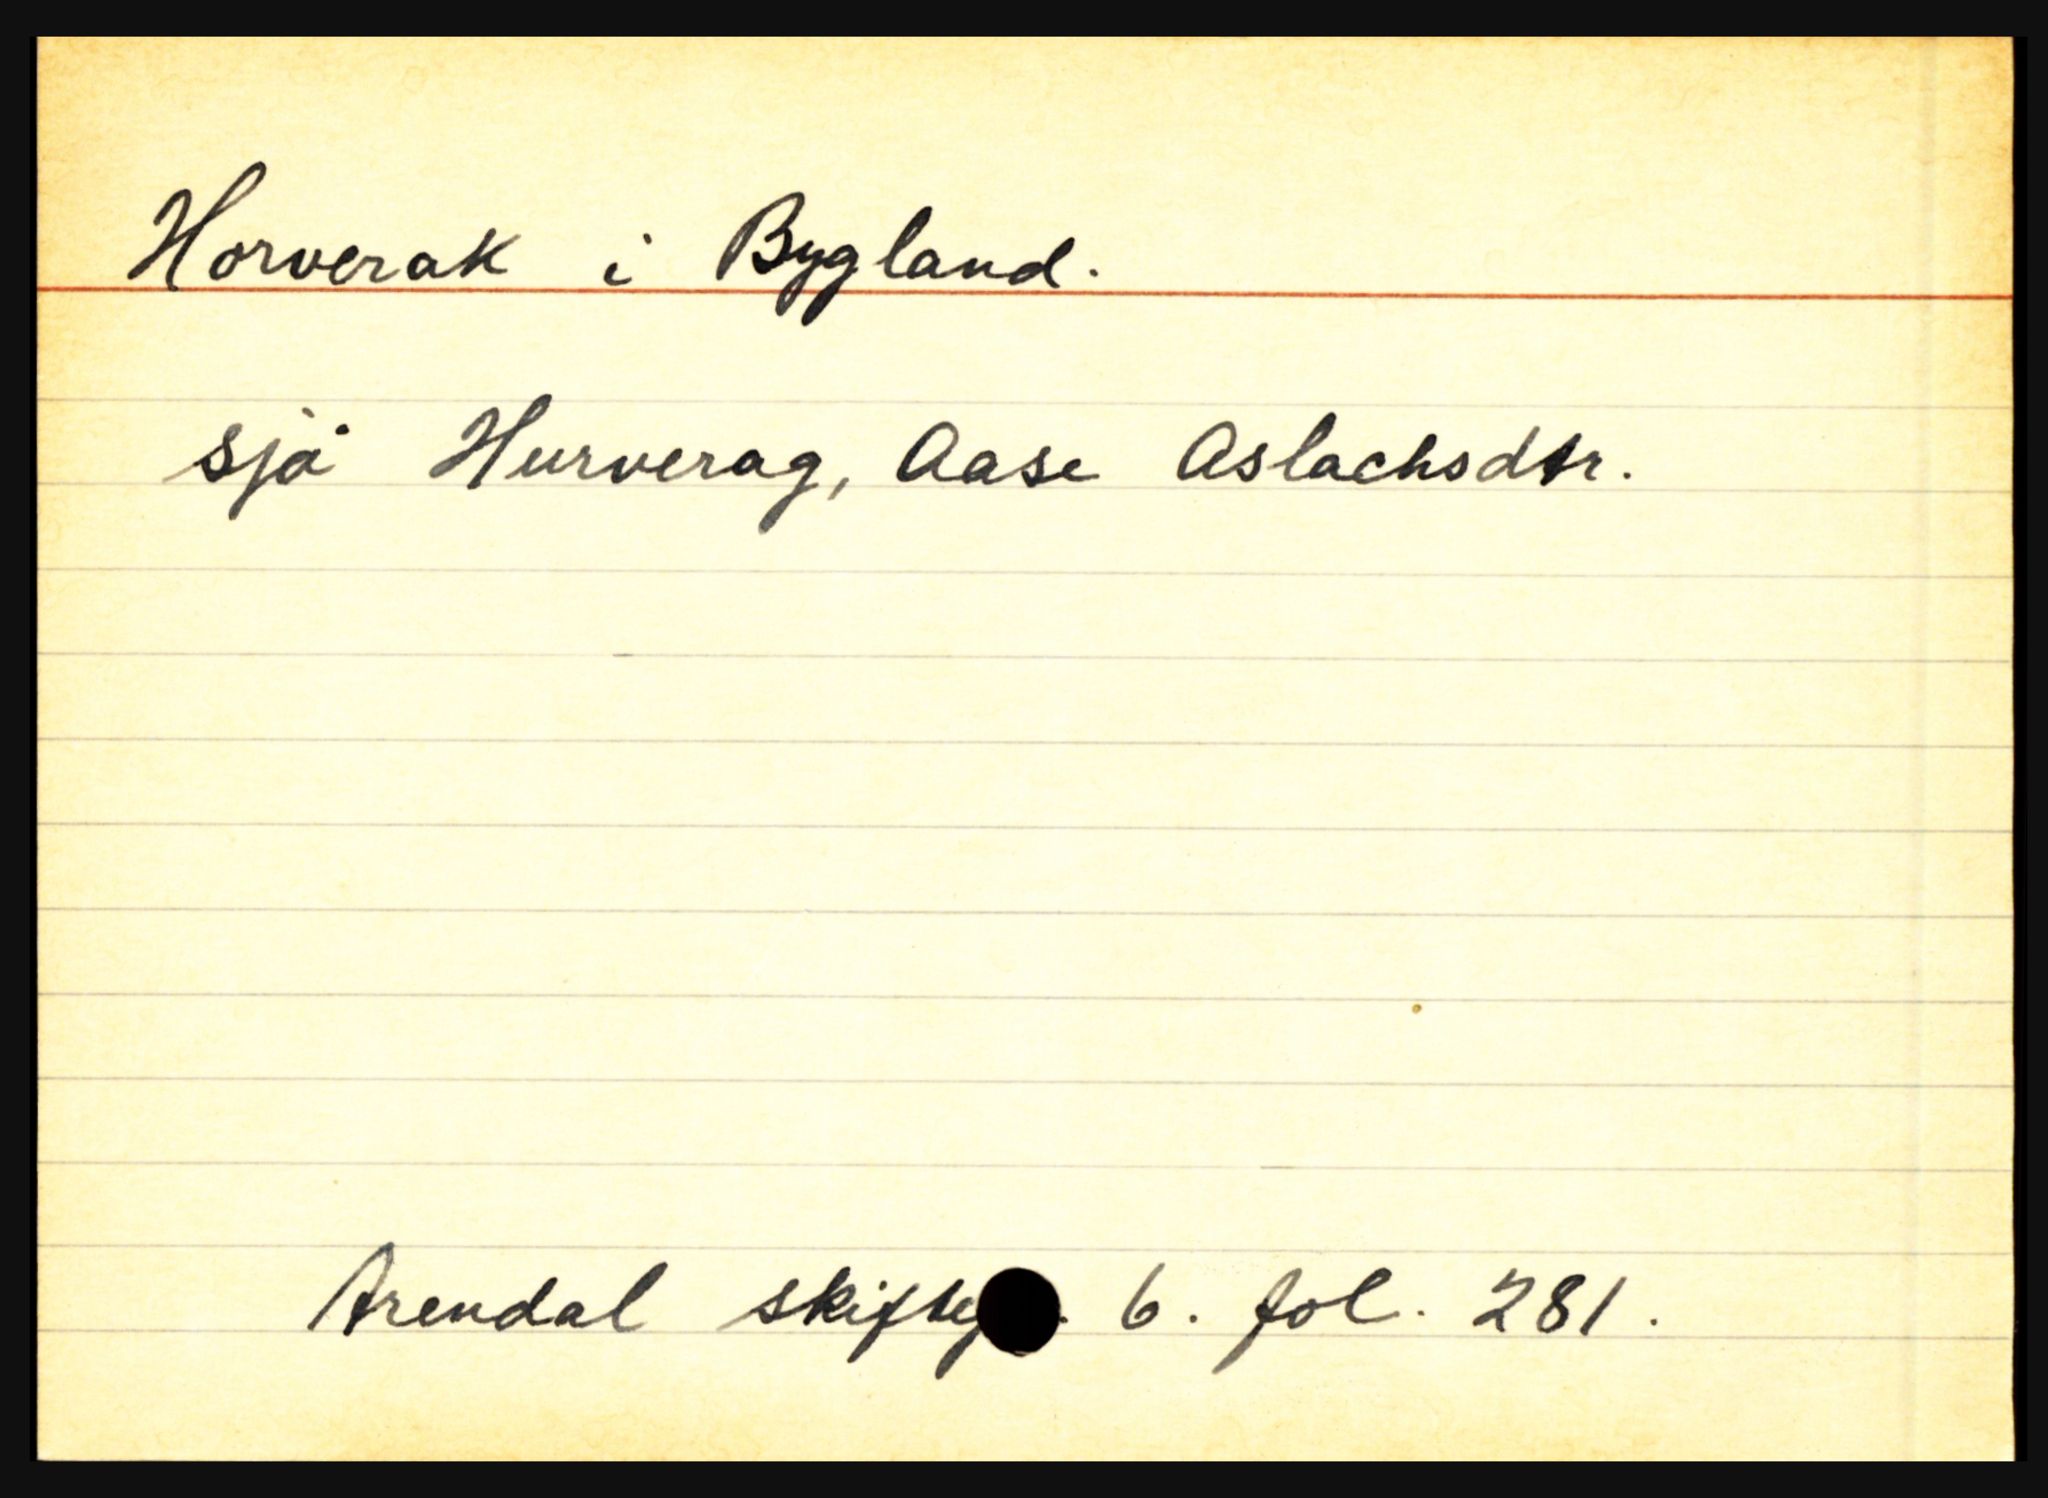 Horverak i Bygland.
sjå Hurverag, Aase Aslachsdtr.
Arendal 6. fol. 281.